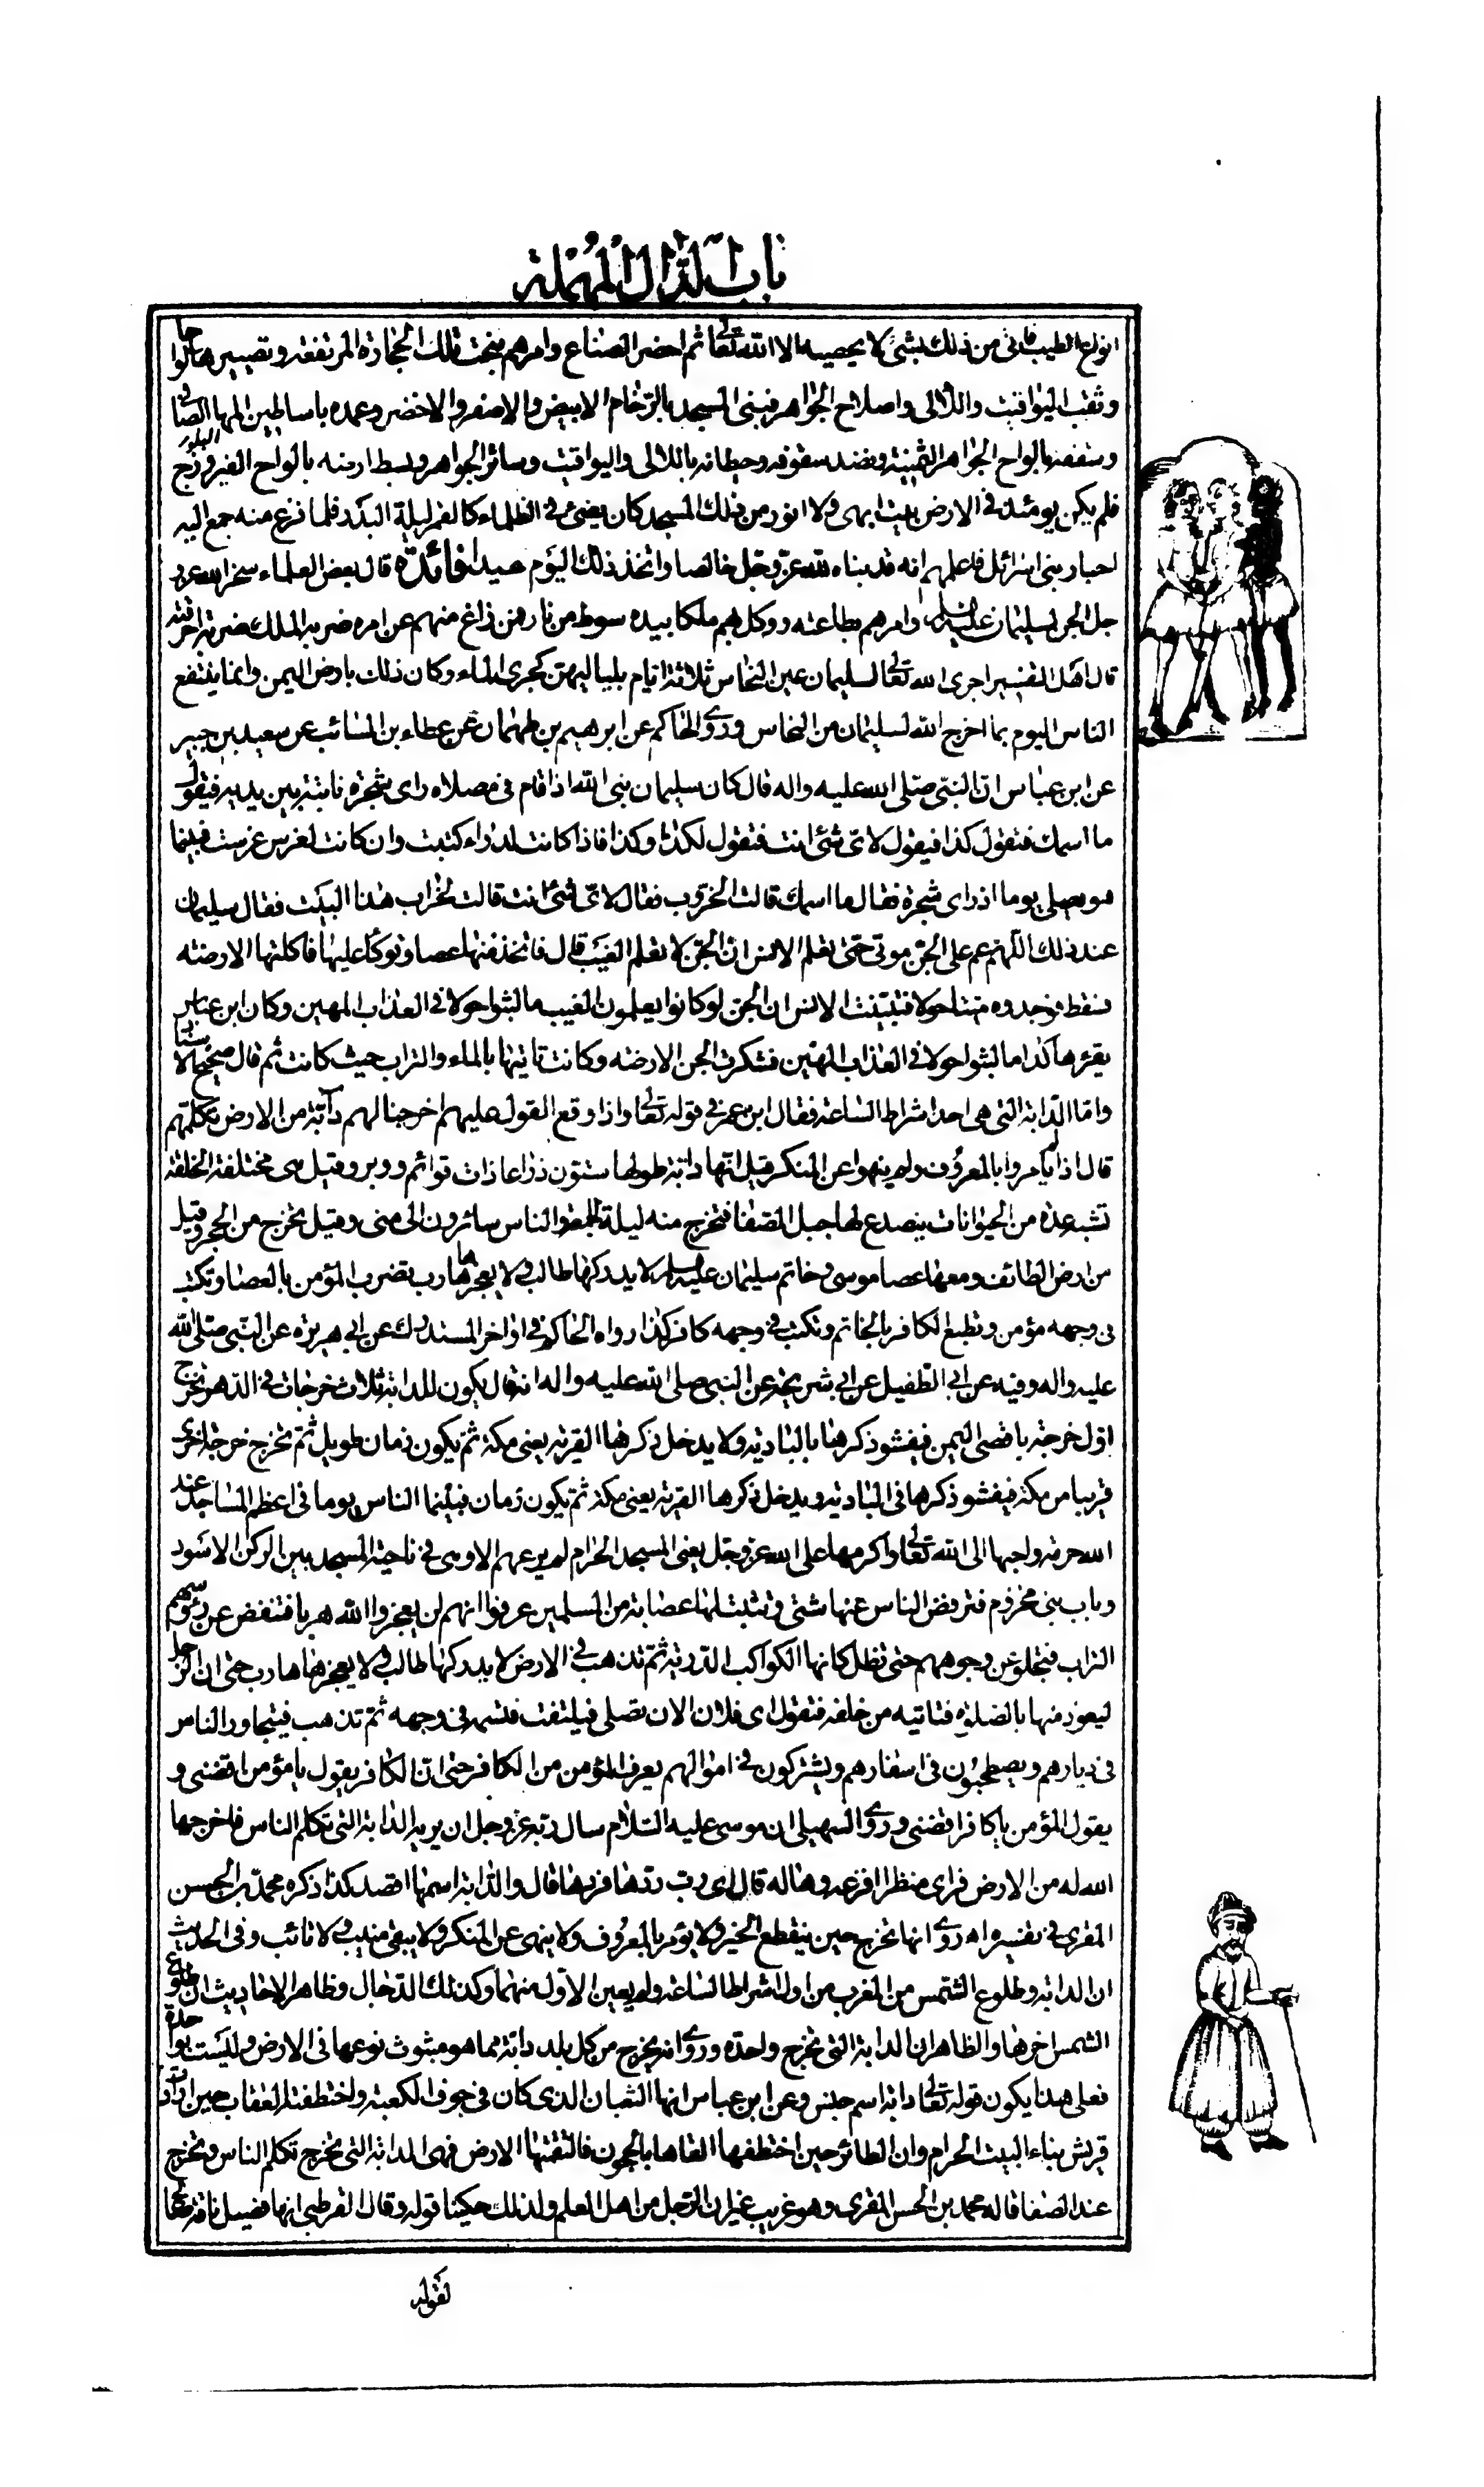 باب الدال المهملة
انواع الطيب فاتى من ذلك بشئ لا يحصيه الا الله تعالى ثم احضر الصناع وامرهم بنحت تلك الحجارة المرتفعة وتصييرها الواحا
وثقب اليواقيت واللآلى واصلاح الجواهر فبنى المسجد بالرخام الابيض والاصفر والاخضر وعمده باساطين المها الصافى البلور
وسقفه بالواح الجواهر الثمينة ونضد سقوفه وحيطانه باللالى واليواقيت وسائر الجواهر وبسط ارضه بالواح الفيروزج
فلم يكن يومئذ فى الارض بيت ابهى ولا انور من ذلك المسجد كان يضئ فى الظلماء كالقمر ليلة البدر فلما فرغ منه جمع اليه
احبار بنى اسرائيل فاعلمهم انه قد بناه لله عز وجل خالصا واتخذ ذلك اليوم عيدا فائدة قال بعض العلماء سخر الله عز و
جل الجن لسليمان عليه السلام وامرهم بطاعته ووكل بهم ملكا بيده سوط من نار فمن زاغ منهم عن امره ضربه الملك ضربة احرقته
قال اهل التفسير اجرى الله تعالى لسليمان عين النحاس ثلاثة ايام بلياليهن كجرى الماء وكان ذلك بارض اليمن وانما ينتفع
الناس اليوم بما اخرج الله لسليمان من النحاس وروى الحاكم عن ابرهيم بن طهمان عن عطاء بن السائب عن سعيد بن جبير
عن ابن عباس ان النبى صلى الله عليه واله قال كان سليمان نبى الله اذا قام فى مصلاه راى شجرة نابتة بين يديه فيقول
ما اسمك فتقول كذا فيقول لاى شئ انت فتقول لكذا وكذا فاذا كانت لدواء كتبت وان كانت لغرس غرست فبينما
هو يصلى يوما اذ راى شجرة فقال ما اسمك قالت الخروب فقال لاى شئ انت قالت لخراب هذا البيت فقال سليمان
عند ذلك اللهم عم على الجن موتى حتى تعلم الانس ان الجن لا تعلم الغيب قال فاتخذ منها عصا وتوكأ عليها فاكلتها الارضة
فسقط فوجدوه ميتا حولا فتبينت الانس ان الجن لو كانوا يعلمون الغيب ما لبثوا حولا فى العذاب المهين وكان ابن عباس
يقرؤها كذا ما لبثوا حولا فى العذاب المهين فشكرت الجن الارضة وكانت تاتيها بالماء والتراب حيث كانت ثم قال صحيح الاسناد
واما الدابة التى هى احد اشراط الساعة فقال ابن عمر فى قوله تعالى واذا وقع القول عليهم اخرجنا لهم دآبة من الارض تكلمهم
قال اذا لم يأمروا بالمعروف ولم ينهوا عن المنكر قيل انها دابة طولها ستون ذراعا ذات قوائم ووبر وقيل هى مختلفة الخلقة
تشبه عدة من الحيوانات ينصدع لها جبل الصفا فتخرج منه ليلة جمع والناس سائرون الى منى وقيل تخرج من الحجر وقيل
من ارض الطائف ومعها عصا موسى وخاتم سليمان عليه السلم لا يدركها طالب ولا يعجزها هارب تضرب المؤمن بالعصا وتكتب
فى وجهه مؤمن وتطبع الكافر بالخاتم وتكتب فى وجهه كافر كذا رواه الحاكم فى اواخر المستدرك عن ابى هريرة عن النبى صلى الله
عليه واله وفيه عن ابى الطفيل عن ابى شريحة عن النبى صلى الله عليه واله انه قال يكون للدابة ثلاث خرجات فى الدهر تخرج
اول خرجة باقصى اليمن فيفشو ذكرها بالبادية ولا يدخل ذكرها القرية يعنى مكة ثم يكون زمان طويل ثم تخرج خرجة اخرى
قريبا من مكة فيفشو ذكرها فى البادية ويدخل ذكرها القرية يعنى مكة ثم يكون زمان فبينما الناس يوما فى اعظم المساجد عند
الله حرمة واحبها الى الله تعالى واكرمها على الله عز وجل يعنى المسجد الحرام لم يرعهم الا وهى فى ناحية المسجد بين الركن الاسود
وباب بنى مخزوم فترفض الناس عنها شتى وتثبت لها عصابة من المسلمين عرفوا انهم لن يعجزوا الله هربا فتنفض عن رؤسهم
التراب فتجلو عن وجوههم حتى تظل كانها الكواكب الدرية ثم تذهب فى الارض لا يدركها طالب ولا يعجزها هارب حتى ان الرجل
ليعوذ منها بالصلوة فتاتيه من خلفه فتقول اى فلان الان تصلى فيلتفت فتسمه فى وجهه ثم تذهب فيتجاور الناس
فى ديارهم ويصطحبون فى اسفارهم ويشتركون فى اموالهم يعرف المؤمن من الكافر حتى ان الكافر يقول يا مؤمن اقضنى و
يقول المؤمن يا كافر اقضنى وروى السهيلى ان موسى عليه السلام سال ربه عز وجل ان يريه الدابة التى تكلم الناس فاخرجها
الله له من الارض فراى منظرا افزعه وهاله قال اى رب ردها فردها قال والدابة اسمها اقصد كذا ذكره محمد بن الحسن
المقرى فى تفسيره اه روى انها تخرج حين ينقطع الخير ولا يؤمر بالمعروف ولا ينهى عن المنكر ولا يبقى منيب ولا تائب وفى الحديث
ان الدابة وطلوع الشمس من المغرب من اول اشراط الساعة ولم يعين الاول منهما وكذلك الدجال وظاهر الاحاديث ان طلوع
الشمس اخرها والظاهر ان الدابة التى تخرج واحدة وروى انه يخرج من كل بلد دابة مما هو مبثوث نوعها فى الارض وليست بواحدة
فعلى هذا يكون قوله تعالى دابة اسم جنس وعن ابن عباس انها الثعبان الذى كان فى جوف الكعبة واختطفته العقاب حين ارادت
قريش بناء البيت الحرام وان الطائر حين اختطفها القاها بالحجون فالتقمتها الارض فهى الدابة التى تخرج تكلم الناس وتخرج
عند الصفا قاله محمد بن الحسن المقرى وهو غريب غير ان الرجل من اهل العلم ولذلك حكينا قوله وقال القرطبى انها فصيل ناقة صالح
لقوله